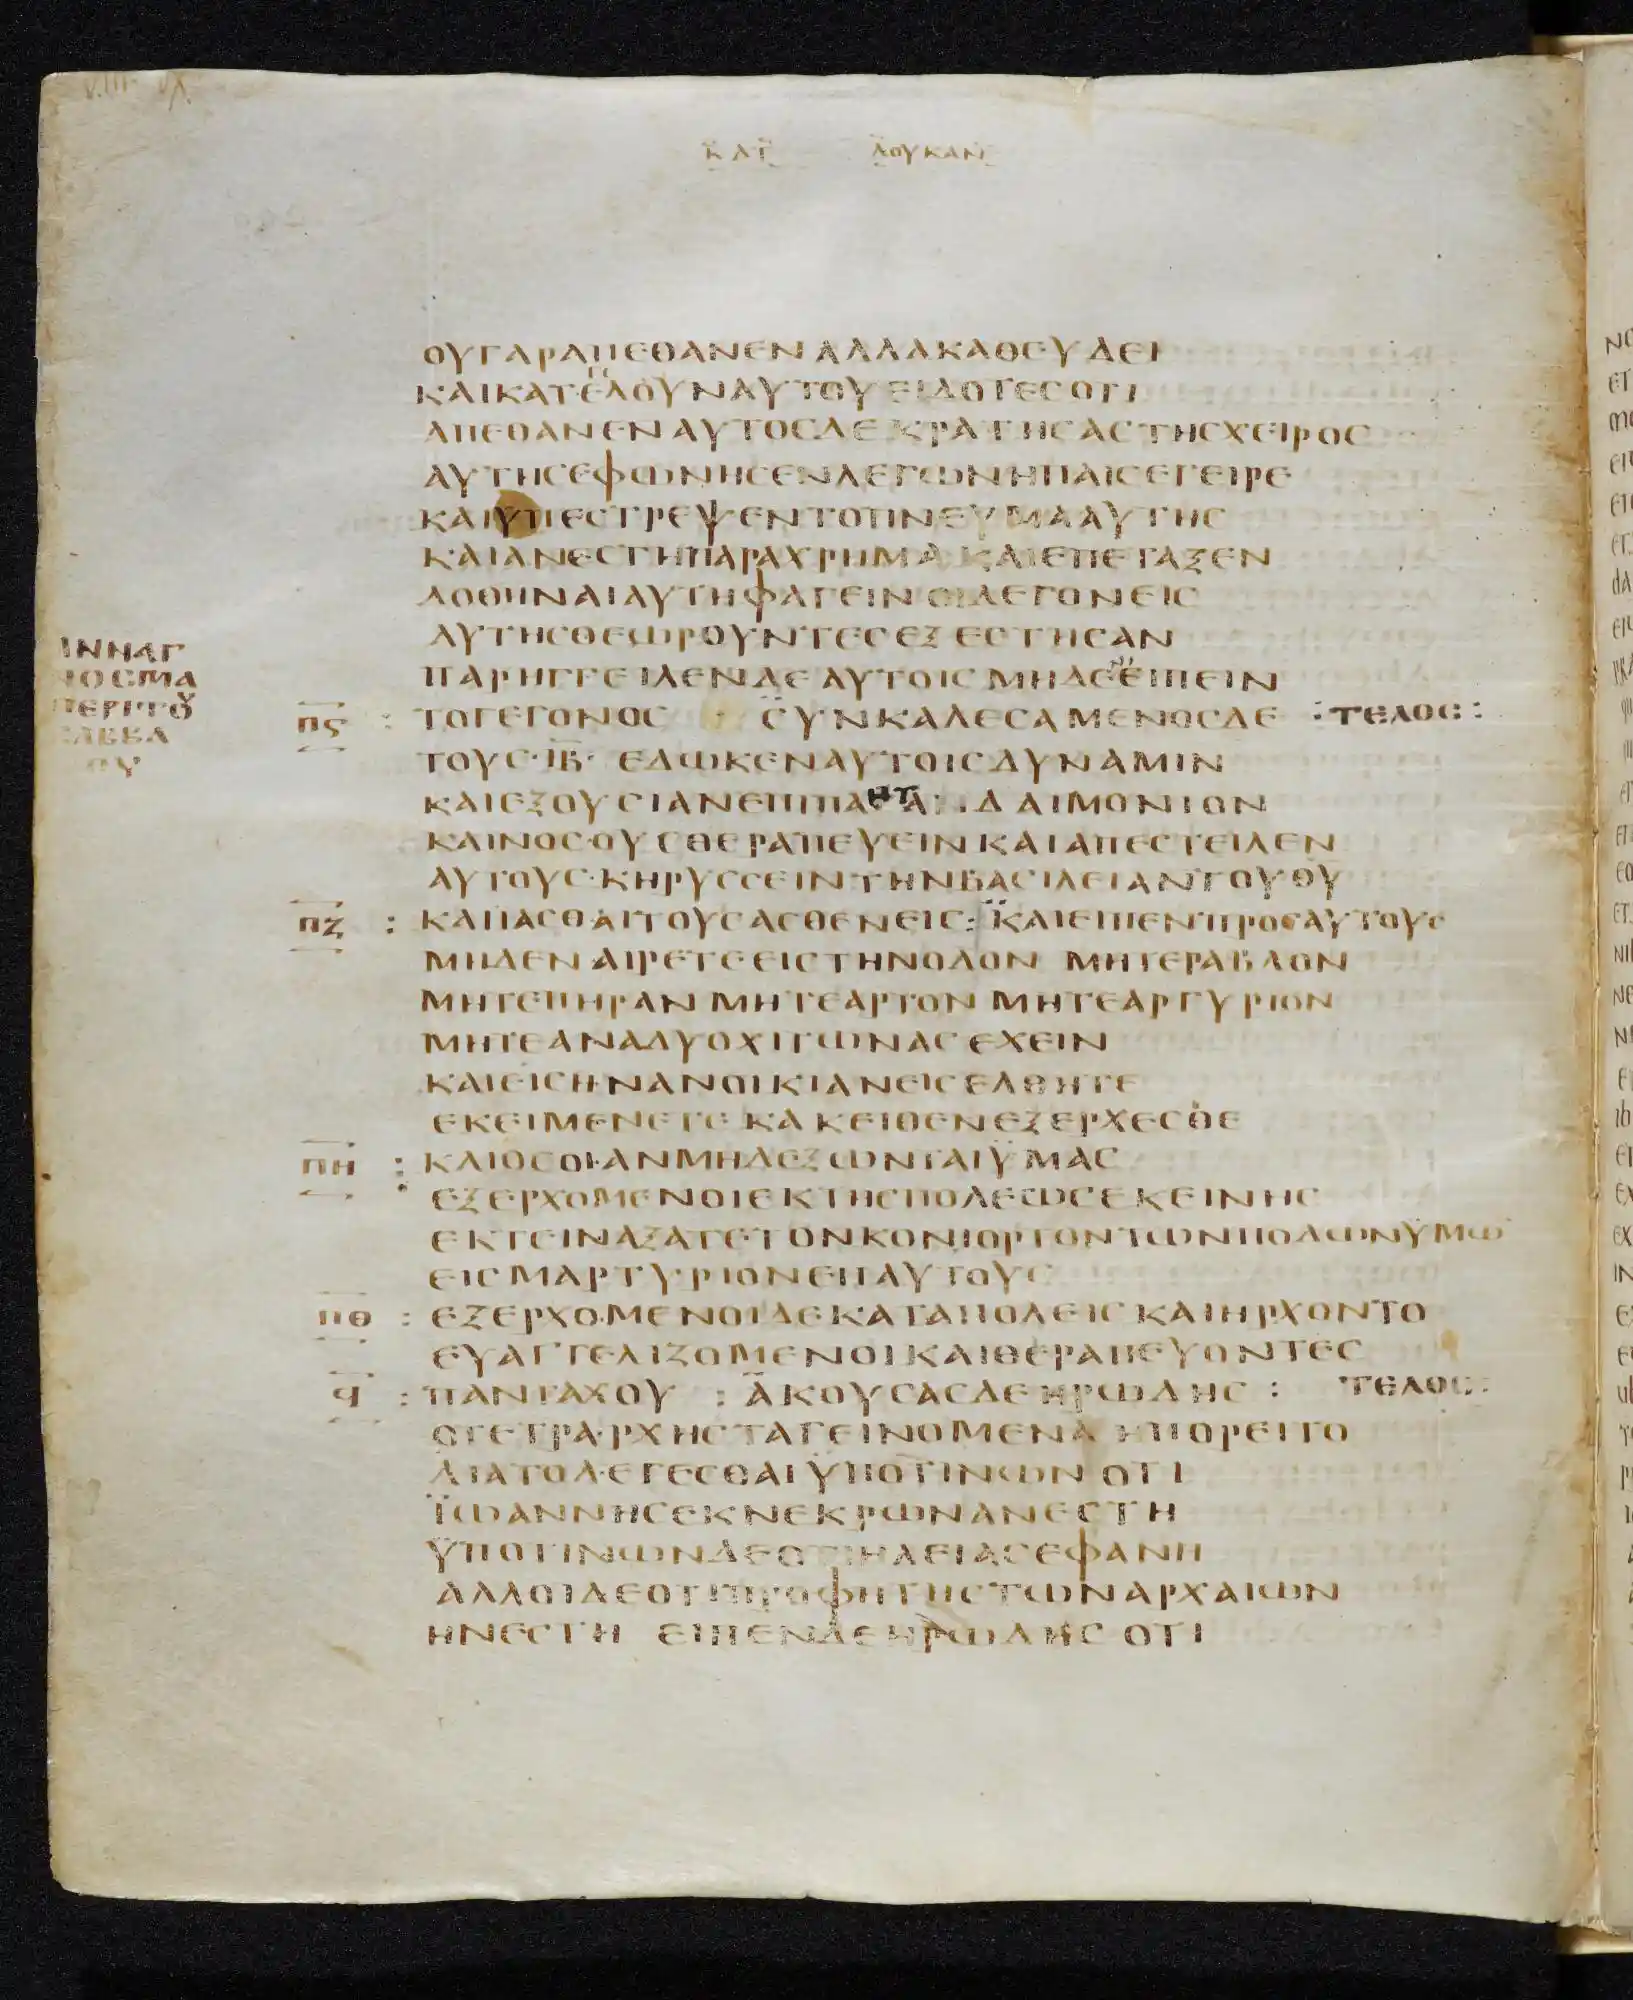 ΚΑΤ ΛΟΥΚΑΝ
ΟΥΓΑΡΑΠΕΘΑΝΕΝΑΛΛΑΚΑΘΕΥΔΕΙ
ΚΑΙΚΑΤΕΛΟΥΝΑΥΤΟΥΕΙΔΟΤΕΣΟΤΙ
ΑΠΕΘΑΝΕΝΑΥΤΟΣΔΕΚΡΑΤΗΣΑΣΤΗΣΧΕΙΡΟΣ
ΑΥΤΗΣΕΦΩΝΗΣΕΝΛΕΓΩΝΗΠΑΙΣΕΓΕΙΡΕ
ΚΑΙΥΠΕΣΤΡΕΨΕΝΤΟΠΝΕΥΜΑΑΥΤΗΣ
ΚΑΙΑΝΕΣΤΗΠΑΡΑΧΡΗΜΑΚΑΙΕΠΕΤΑΞΕΝ
ΔΟΘΗΝΑΙΑΥΤΗΦΑΓΕΙΝΟΙΔΕΓΟΝΕΙΣ
ΑΥΤΗΣΘΕΩΡΟΥΝΤΕΣΕΞΕΣΤΗΣΑΝ
ΠΑΡΗΓΓΕΙΛΕΝΔΕ ΑΥΤΟΙΣ ΜΗΔΕΕΙΠΕΙΝ
Πϛ : ΤΟΓΕΓΟΝΟΣ ΣΥΝΚΑΛΕΣΑΜΕΝΟΣΔΕ :ΤΕΛΟΣ:
ΤΟΥΣ·ΙΒ· ΕΔΩΚΕΝΑΥΤΟΙΣΔΥΝΑΜΙΝ
ΚΑΙΕΞΟΥΣΙΑΝΕΠΙΠΑ ΔΑΙΜΟΝΙΟΝ
ΚΑΙΝΟΣΟΥΣΘΕΡΑΠΕΥΕΙΝΚΑΙΑΠΕΣΤΕΙΛΕΝ
ΑΥΤΟΥΣ·ΚΗΡΥΣΣΕΙΝΤΗΝΒΑΣΙΛΕΙΑΝΤΟΥΘΥ
ΠΖ : ΚΑΙΙΑΣΘΑΙΤΟΥΣΑΣΘΕΝΕΙΣ: ΚΑΙΕΙΠΕΝΠΡΟΣΑΥΤΟΥΣ
ΜΗΔΕΝΑΙΡΕΤΕΕΙΣΤΗΝΟΔΟΝ ΜΗΤΕΡΑΒΔΟΝ
ΜΗΤΕΠΗΡΑΝ ΜΗΤΕΑΡΤΟΝ ΜΗΤΕΑΡΓΥΡΙΟΝ
ΜΗΤΕΑΝΑΔΥΟΧΙΤΩΝΑΣΕΧΕΙΝ
ΚΑΙΕΙΣΗΝΑΝΟΙΚΙΑΝΕΙΣΕΛΘΗΤΕ
ΕΚΕΙΜΕΝΕΤΕ ΚΑΚΕΙΘΕΝΕΞΕΡΧΕΣΘΕ
ΠΗ : ΚΑΙΟΣΟΙΑΝΜΗΔΕΞΩΝΤΑΙΫΜΑΣ
ΕΞΕΡΧΟΜΕΝΟΙΕΚΤΗΣΠΟΛΕΩΣΕΚΕΙΝΗΣ
ΕΚΤΕΙΝΑΞΑΤΕΤΟΝΚΟΝΙΟΡΤΟΝΤΩΝΠΟΔΩΝΥΜΩ
ΕΙΣΜΑΡΤΥΡΙΟΝΕΠΑΥΤΟΥΣ
ΠΘ : ΕΞΕΡΧΟΜΕΝΟΙΔΕΚΑΤΑΠΟΛΕΙΣΚΑΙΗΡΧΟΝΤΟ
ΕΥΑΓΓΕΛΙΖΟΜΕΝΟΙΚΑΙΘΕΡΑΠΕΥΟΝΤΕΣ
Ϥ : ΠΑΝΤΑΧΟΥ : ΑΚΟΥΣΑΣΔΕΗΡΩΔΗΣ : ΤΕΛΟΣ:
ΟΤΕΤΡΑΡΧΗΣΤΑΓΕΙΝΟΜΕΝΑΗΠΟΡΕΙΤΟ
ΔΙΑΤΟΛΕΓΕΣΘΑΙΫΠΟΤΙΝΩΝ ΟΤΙ
ΪΩΑΝΝΗΣΕΚΝΕΚΡΩΝΑΝΕΣΤΗ
ΫΠΟΤΙΝΩΝΔΕΟΤΙΗΛΕΙΑΣΕΦΑΝΗ
ΑΛΛΟΙΔΕΟΤΙΠΡΟΦΗΤΗΣΤΩΝΑΡΧΑΙΩΝ
ΗΝΕΣΤΗ ΕΙΠΕΝΔΕΗΡΩΔΗΣ ΟΤΙ
ΑΝΝΑΓ
ΝΟΣΜΑ
ΠΕΡΙΤΟΥ
ΣΑΒΒΑ
ΤΟΥ